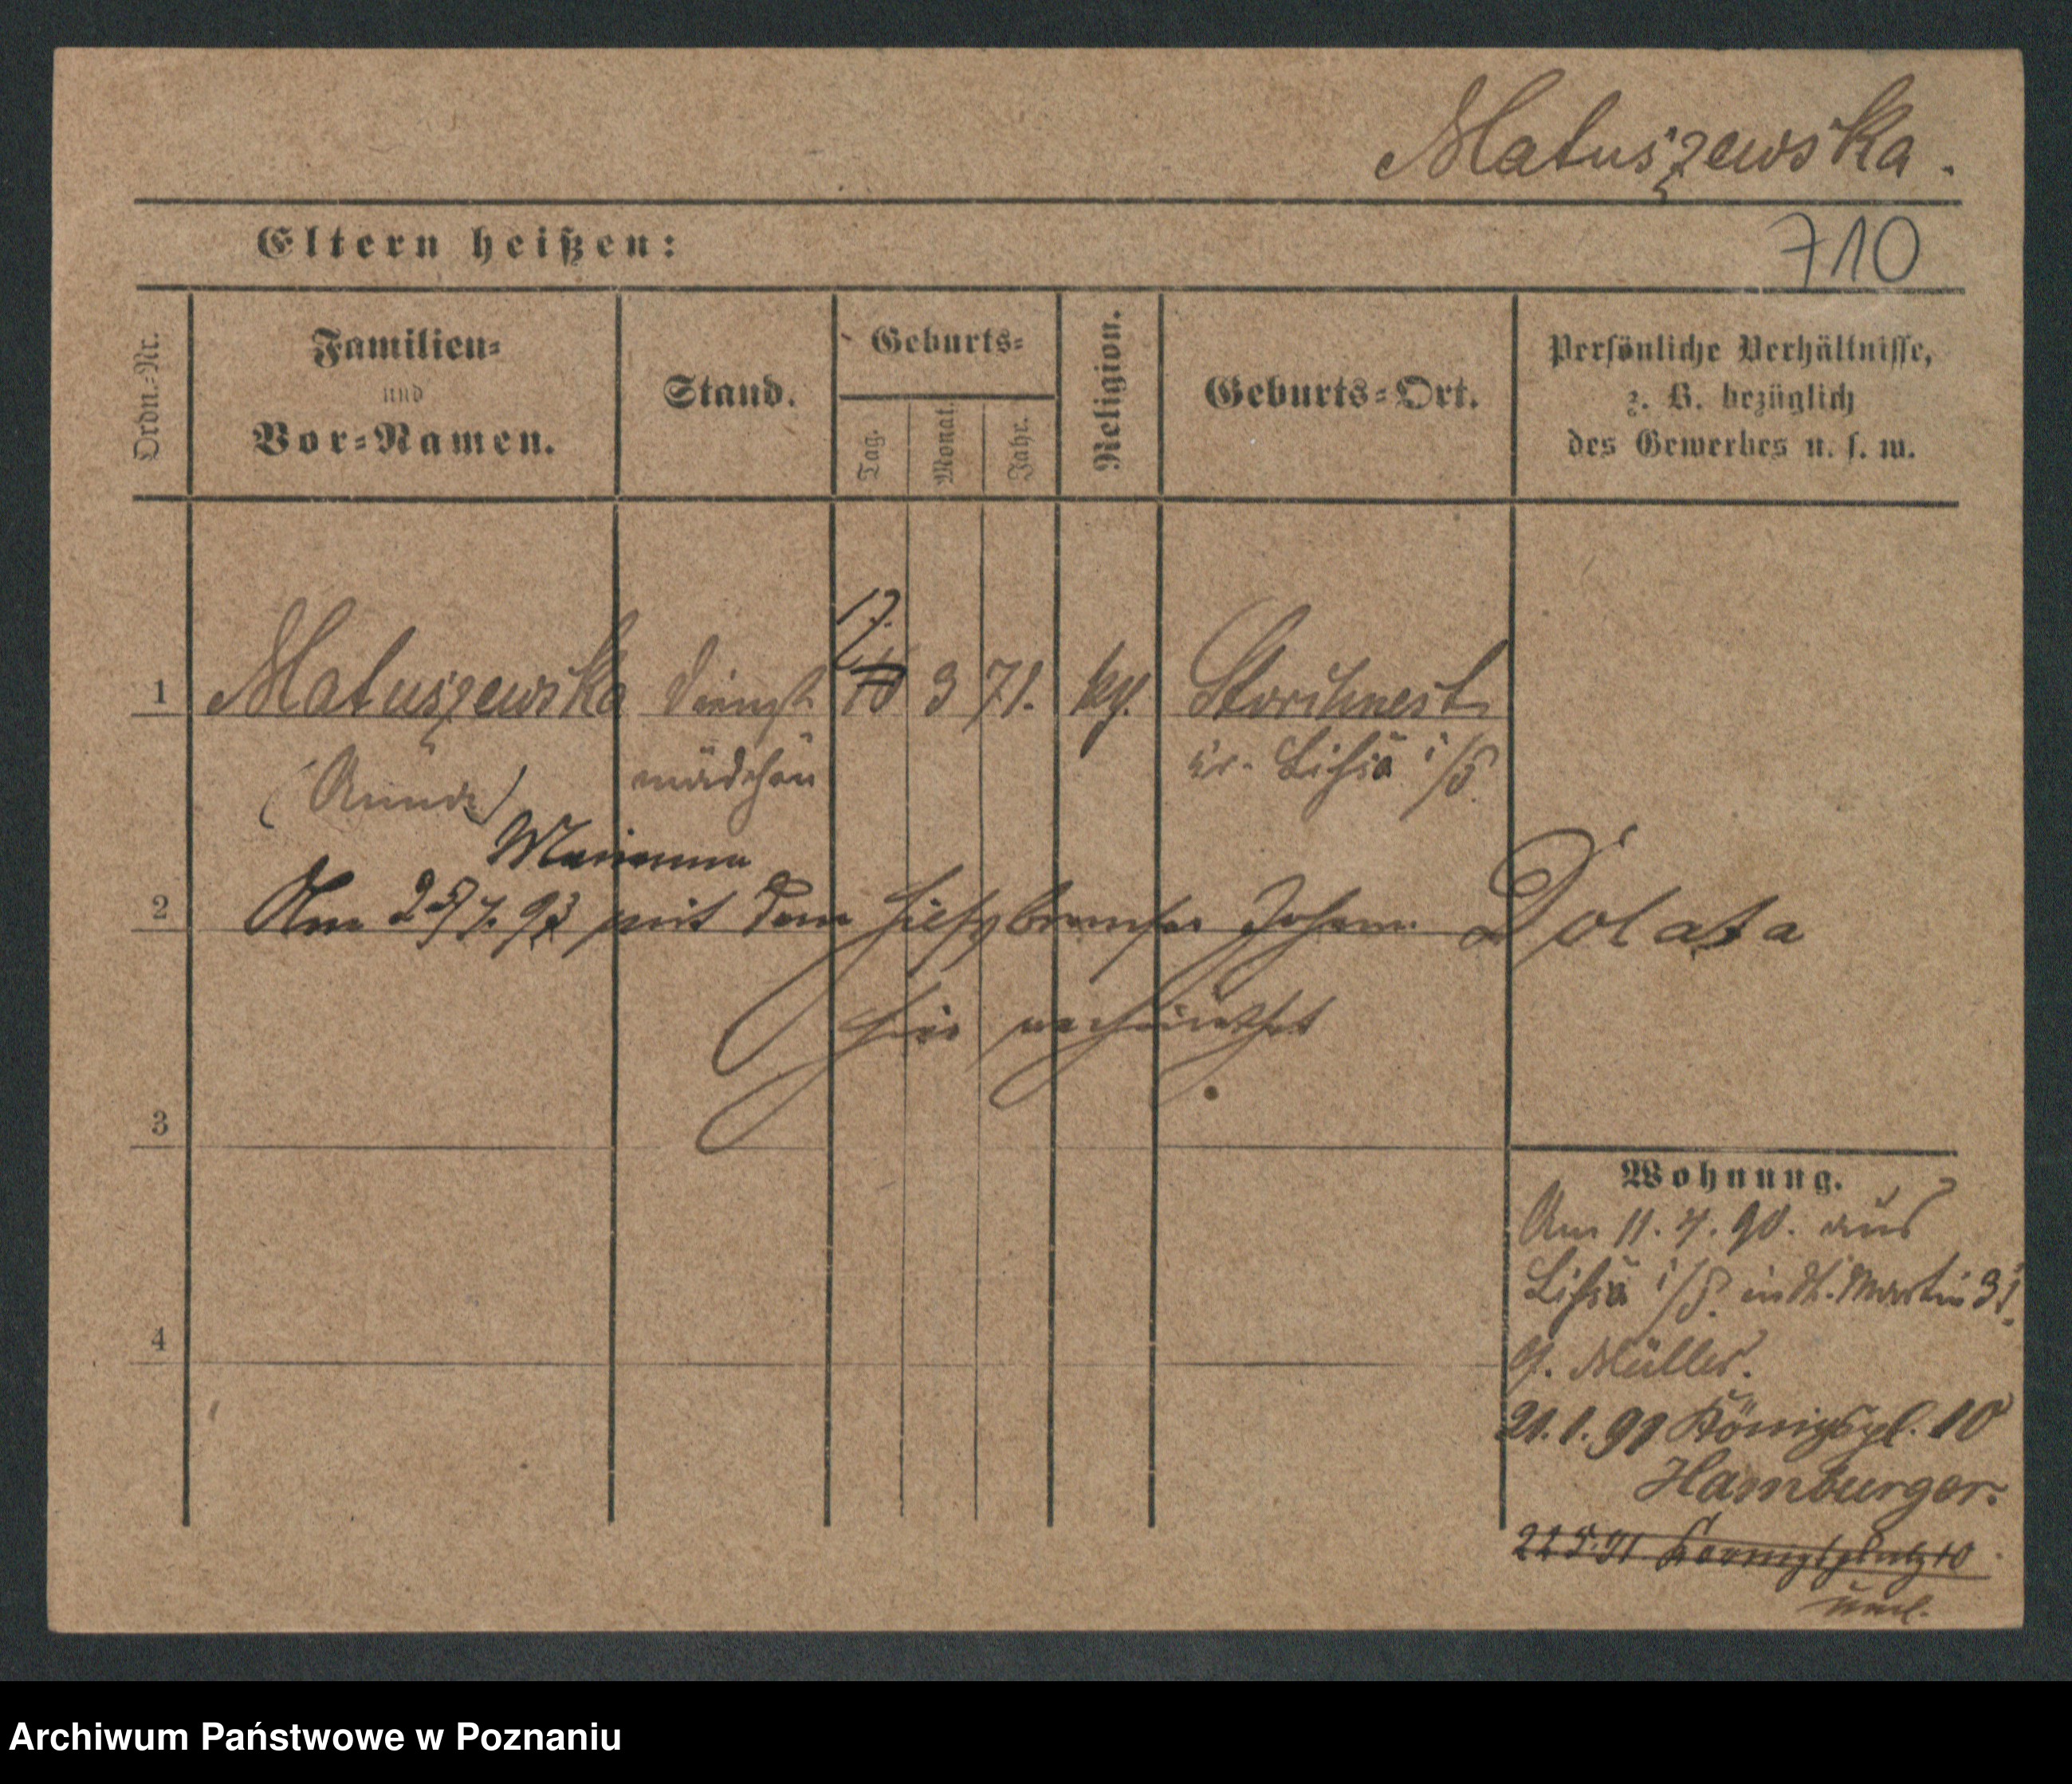 Matuszewska.
Eltern heißen:
710
Ordn.-Nr.
Familien-
und
Vor-Namen.
Stand.
Geburts-
Tag.
Monat.
Jahr.
Religion.
Geburts-Ort.
Persönliche Verhältnisse,
z. B. bezüglich
des Gewerbes u. s. w.
17.
1 Matuszewska Dienst 10 3 71. kg. Storchnest
mädchen Kr. Lissa i/P.
Marianna
2 Am 25/7. 93 mit dem Johann Dolata
hier verheirathet
3
Wohnung.
Am 11. 4. 90. aus
Lissa i/P. in St. Martin 31.
G. Müller.
21. 1. 91 Königspl. 10
Hamburger.
4
22 5. 91 Koenigsplatz 10
Archiwum Państwowe w Poznaniu